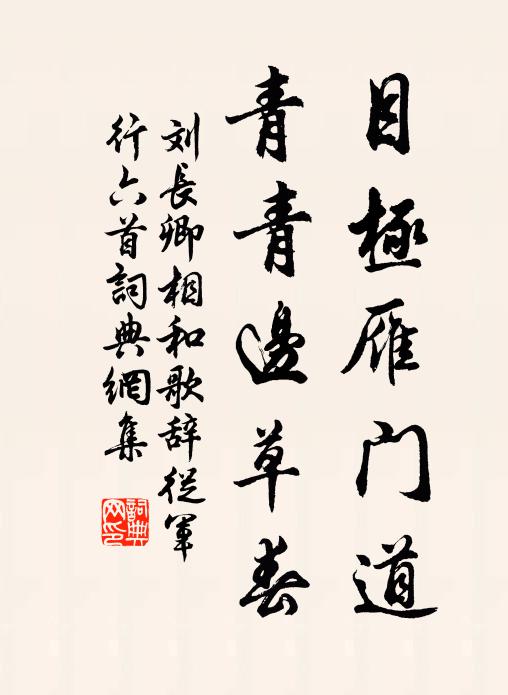 目極雁门道
青青邊草春
刘長卿相和歌辞從軍
行六首詞典網集
詞典
网印